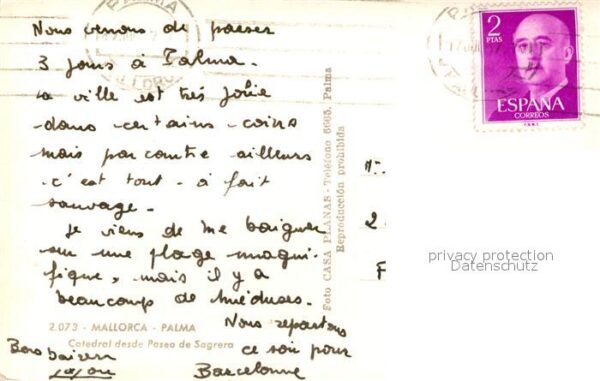 PALMA
Nous venons de passer
3 jours à Palma.
La ville est très jolie
dans certains coins
mais par contre ailleurs
c'est tout à fait
sauvage.
Je viens de me baigner
sur une plage magni-
fique, mais il y a
beaucoup de méduses.
Nous repartons
ce soir pour
Barcelonne
Bons baisers
2.073 - MALLORCA - PALMA
Catedral desde Paseo de Sagrera
Foto CASA PLANAS - Teléfono 6665, Palma
Reproducción prohibida
2
PTAS
ESPAÑA
CORREOS
2
privacy protection
Datenschutz